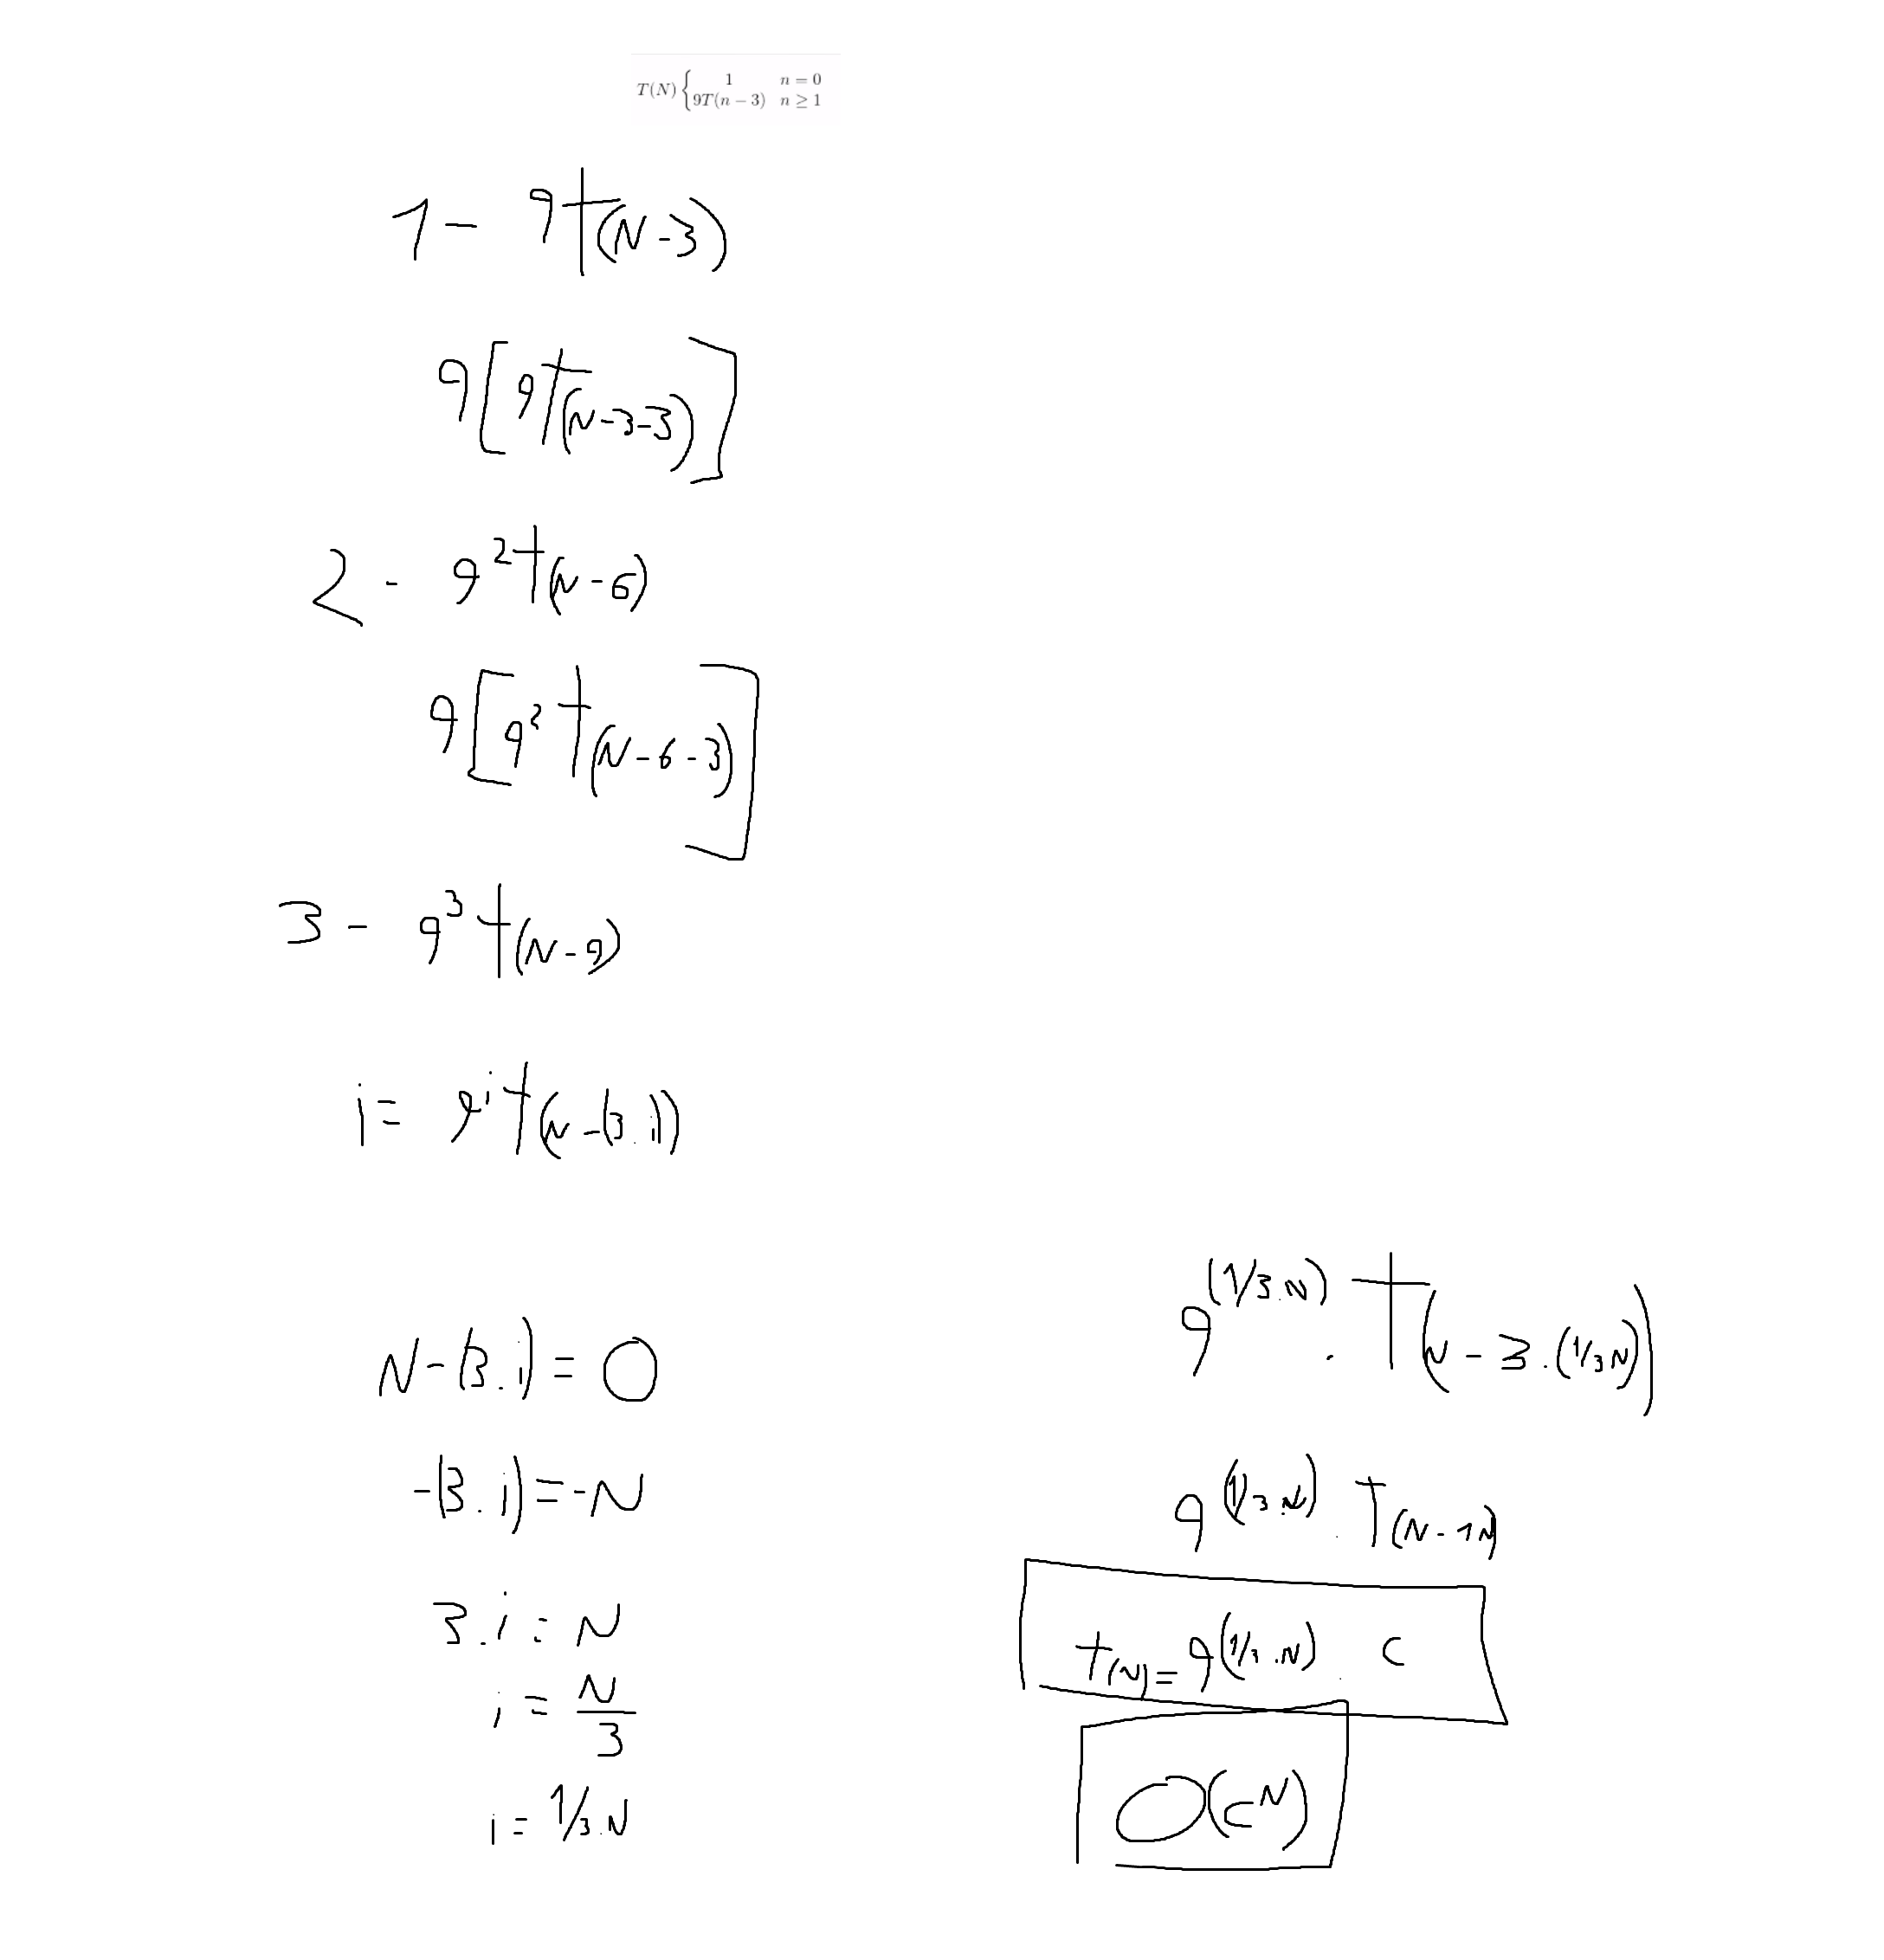 T(N) { 1 n = 0
9T(n − 3) n ≥ 1
1 - 9T(N-3)
9[9T(N-3-3)]
2 - 9²T(N-6)
9[9²T(N-6-3)]
3 - 9³T(N-9)
i = 9ⁱT(N-(3.i))
N-(3.i)=0
-(3.i)=-N
3.i=N
i = N/3
i = 1/3.N
9^(1/3.N) . T(N-3.(1/3N))
9^(1/3.N) . T(N-1N)
T(N)=9^(1/3.N) . C
O(C^N)